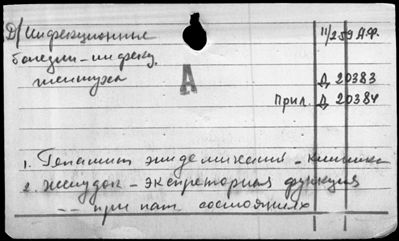 Д/Инфекционные 11/259 А.Ф.
болезни - инфекц.
желтуха Д 20383
А
Прил. Д 20384
1. Гепатит эпидемический - клиника
2. Желудок - экскреторная функция
-- при пат. состояниях